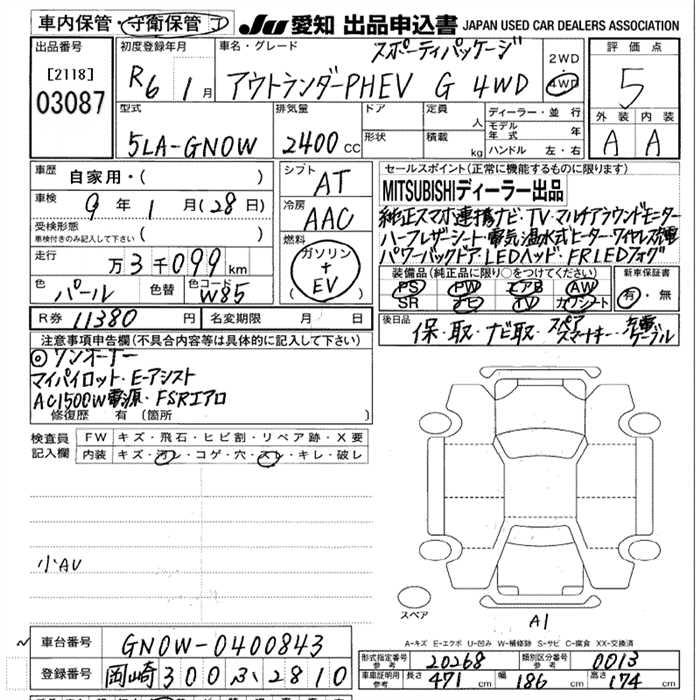 車内保管・守衛保管 J
JU 愛知 出品申込書 JAPAN USED CAR DEALERS ASSOCIATION
出品番号
[2118]
03087
初度登録年月
R6 1月
車名・グレード
スポーティパッケージ
アウトランダーPHEV G 4WD
2WD
4WD
評価点
5
外装 内装
A A
型式
5LA-GN0W
排気量
2400cc
ドア
形状
定員 人
積載 kg
ディーラー・並行
モデル年式 年
ハンドル 左・右
車歴
自家用・( )
車検
9年1月(28日)
受検形態
車検付きのみ記入して下さい ( )
走行
万3千099km
色
パール
色替
色コード
W85
シフト
AT
冷房
AAC
燃料
ガソリン
+
EV
( )
セールスポイント(正常に機能するものに限ります)
MITSUBISHIディーラー出品
純正スマホ連携ナビ・TV・マルチアラウンドモニター
ハーフレザーシート・電気温水式ヒーター・ワイヤレス充電
パワーバックドア・LEDヘッド・FR LEDフォグ
装備品(純正品に限り○をつけてください)
PS PW エアB AW
SR ナビ TV カワシート
新車保証書
有・無
R券 11380円
名変期限 月 日
後日品
保・取・ナビ取・スペアスマートキー・充電ケーブル
注意事項申告欄(不具合内容等は具体的に記入して下さい)
◎ワンオーナー
マイパイロット・E-アシスト
AC1500W電源・FSRエアロ
修復歴 有(箇所 )
検査員記入欄
FW キズ・飛石・ヒビ割・リペア跡・X要
内装 キズ・汚レ・コゲ・穴・スレ・キレ・破レ
小AU
スペア
A1
A-キズ E-エクボ U-凹み W-補修跡 S-サビ C-腐食 XX-交換済
車台番号
GN0W-0400843
登録番号
岡崎300ふ2810
形式指定番号
参考
20268
類別区分番号
参考
0013
車庫証明用
参考
長さ 471cm
幅 186cm
高さ 174cm